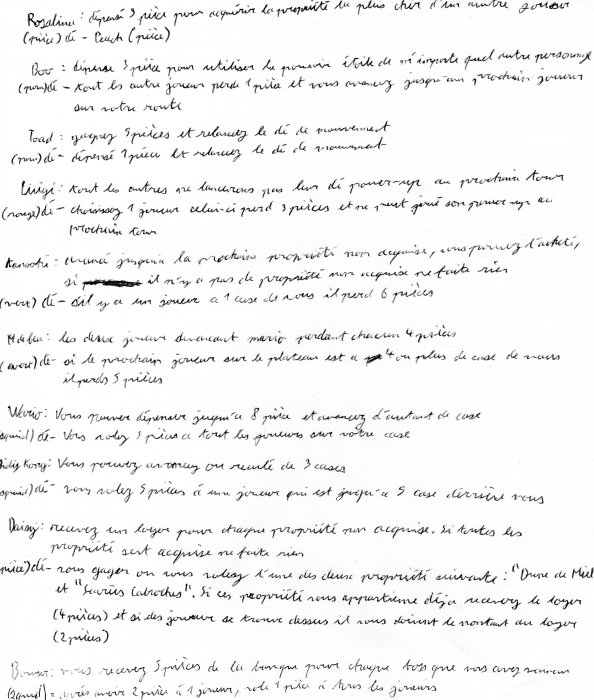 Rosalina : dépensé 3 pièce pour acquérir la propriété la plus cher d'un autre joueur
(pièce) dé - (pièce)
Boo : dépense 3 pièce pour utiliser le pouvoir étoile de n'importe quel autre personnage
dé - tout les autre joueur perde 1 pièce et vous avancez jusqu'au prochain joueur
sur votre route
Toad : gagnez 5 pièces et relancez le dé de mouvement
dé - dépensé 1 pièce et relancez le dé de mouvement
Luigi : tout les autres ne lancerons pas leur dé power-up au prochain tour
(rouge) dé - choisissez 1 joueur celui-ci perd 3 pièces et ne peut son power-up au
prochain tour
: avancé jusqu'à la prochaine propriété non acquise, vous pouvez l'acheté,
si il n'y a pas de propriété non acquise ne faite rien
(vert) dé - s'il y a un joueur a 1 case de vous il perd 6 pièces
: les deux joueur devancant mario perdent chacun 4 pièces
dé - si le prochain joueur sur le plateau est a 4 ou plus de case de vous
il perds 5 pièces
Wario : Vous pouvez dépenser jusqu'a 8 pièce et avancez d'autant de case
(squid) dé - Vous volez 3 pièces a tout les joueurs sur votre case
Kong : Vous pouvez avancez ou reculé de 3 cases
(squid) dé - vous volez 5 pièces à un joueur qui est jusqu'a 5 case derrière vous
Daisy : recevez un loyer pour chaque propriété non acquise. Si toutes les
propriété sont acquise ne faite rien
(pièce) dé - vous gagner ou vous volez l'une des deux propriété suivante : "Dune de Miel"
et " ". Si ces propriété vous appartienne déja recevez le loyer
(4 pièces) et si des joueur se trouve dessus il vous doivent le montant du loyer
(2 pièces)
Bowser : vous recevez 5 pièces de la banque pour chaque boss que vous avez vaincu
(squid) = après avoir 2 pièce à 1 joueur, vole 1 pièce à tous les joueurs